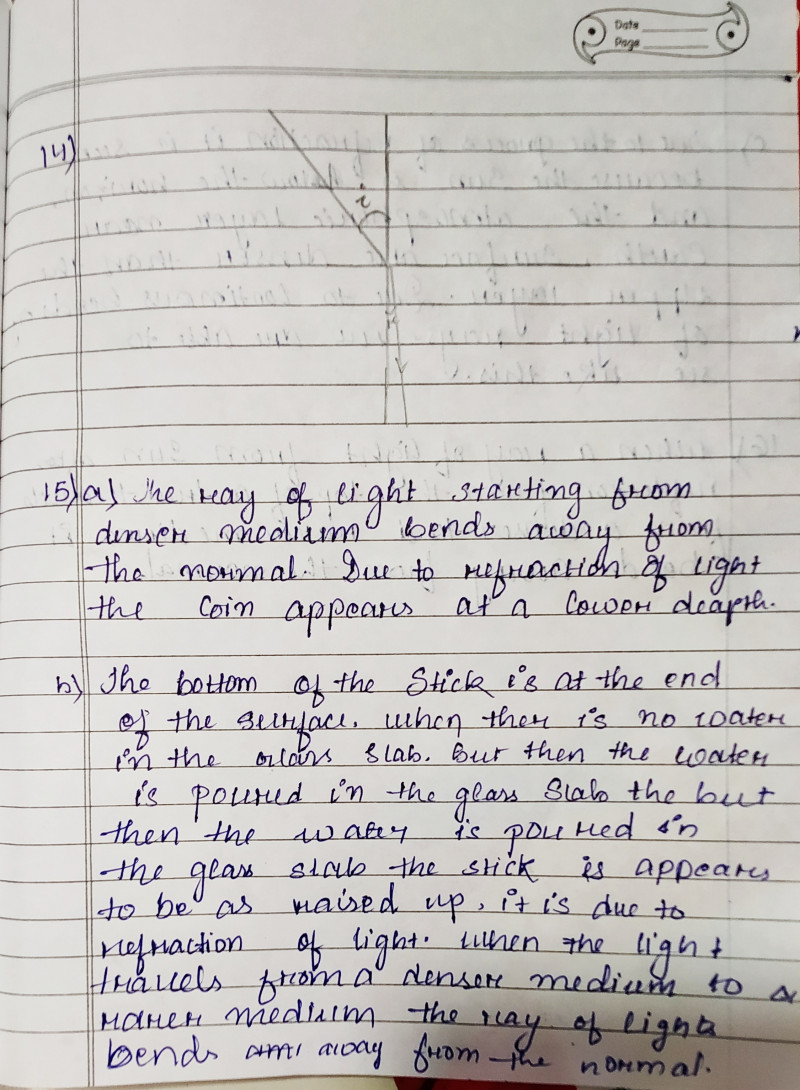 Date
Page
14)
i
r
15) a) The ray of light starting from
denser medium bends away from
the normal. Due to refraction of light
the Coin appears at a lower deapth.
b) The bottom of the Stick is at the end
of the surface. when ther is no water
in the glass slab. But then the water
is poured in the glass Slab the but
then the water is poured in
the glass slab the stick is appears
to be as raised up, it is due to
refraction of light. When the light
travels from a denser medium to a
rarer medium the ray of light
bends away from the normal.